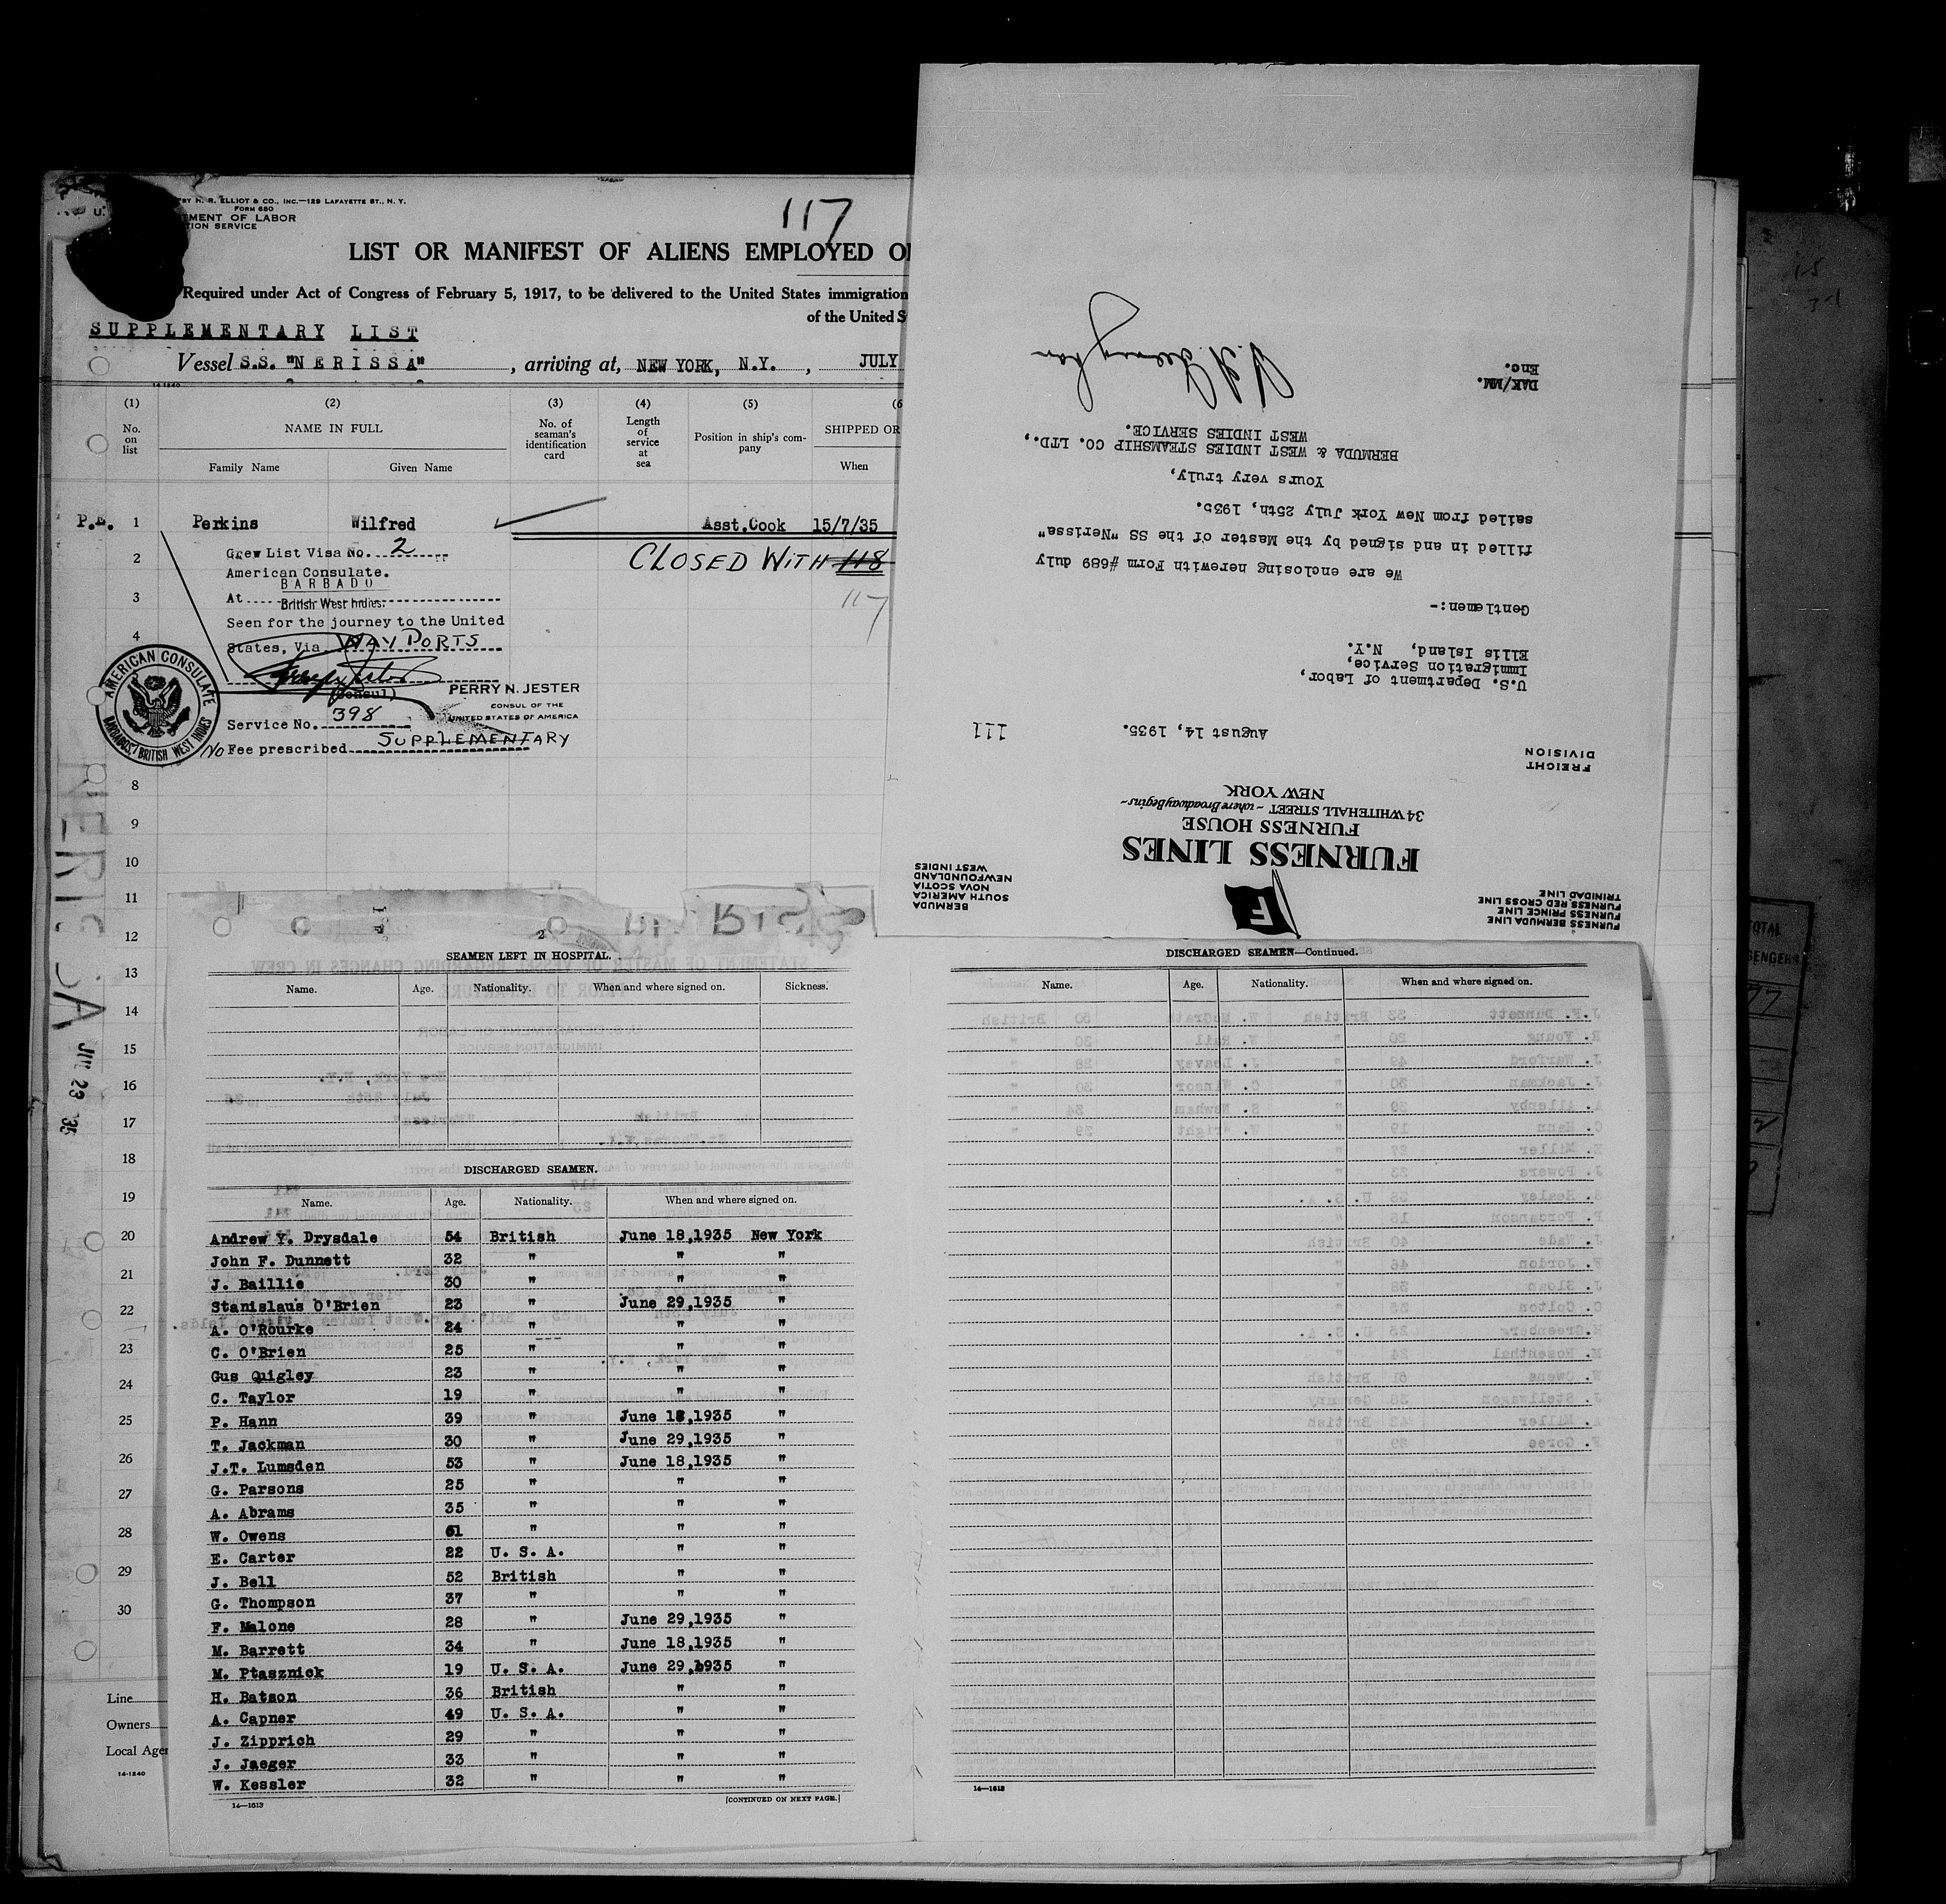 BY N. R. ELLIOT & CO., INC.—129 LAFAYETTE ST., N. Y.
FORM 680
MENT OF LABOR
TION SERVICE
117
LIST OR MANIFEST OF ALIENS EMPLOYED O
Required under Act of Congress of February 5, 1917, to be delivered to the United States immigration
of the United S
SUPPLEMENTARY LIST
Vessel S.S. "NERISSA", arriving at, NEW YORK, N.Y., JULY
14-1240
(1) (2) (3) (4) (5) (6
No. on list NAME IN FULL No. of seaman's identification card Length of service at sea Position in ship's company SHIPPED OR
Family Name Given Name When
P.E. 1 Perkins Wilfred Asst.Cook 15/7/35
2 Crew List Visa No. 2 CLOSED WITH 118
American Consulate.
BARBADO
3 At British West Indies. 117
Seen for the journey to the United
4 States, Via WAY PORTS
(Consul) PERRY N. JESTER
CONSUL OF THE
UNITED STATES OF AMERICA
Service No. 398
No Fee prescribed SUPPLEMENTARY
AMERICAN CONSULATE
BARBADOS, BRITISH WEST INDIES
8
9
10
11
12
13
14
15
16
17
18
19
20
21
22
23
24
25
26
27
28
29
30
NERISSA
JUL 23 35
Line
Owners
Local Agen
14-1240
FURNESS BERMUDA LINE
FURNESS PRINCE LINE
FURNESS RED CROSS LINE
TRINIDAD LINE
F
BERMUDA
SOUTH AMERICA
NOVA SCOTIA
NEWFOUNDLAND
WEST INDIES
FURNESS LINES
FURNESS HOUSE
34 WHITEHALL STREET ~ where Broadway Begins ~
NEW YORK
FREIGHT
DIVISION
August 14, 1935. 111
U.S. Department of Labor,
Immigration Service,
Ellis Island, N.Y.
Gentlemen:-
We are enclosing herewith Form #689 duly
filled in and signed by the Master of the SS "Nerissa"
sailed from New York July 25th, 1935.
Yours very truly,
BERMUDA & WEST INDIES STEAMSHIP CO. LTD.,
WEST INDIES SERVICE.
DAK/MM.
Enc.
2
SEAMEN LEFT IN HOSPITAL.
Name. Age. Nationality. When and where signed on. Sickness.
DISCHARGED SEAMEN.
Name. Age. Nationality. When and where signed on.
Andrew Y. Drysdale 54 British June 18,1935 New York
John F. Dunnett 32 " " "
J. Baillie 30 " " "
Stanislaus O'Brien 23 " June 29,1935 "
A. O'Rourke 24 " " "
C. O'Brien 25 " " "
Gus Quigley 23 " " "
C. Taylor 19 " " "
P. Hann 39 " June 18,1935 "
T. Jackman 30 " June 29,1935 "
J.T. Lumsden 53 " June 18,1935 "
G. Parsons 25 " " "
A. Abrams 35 " " "
W. Owens 61 " " "
E. Carter 22 U. S. A. " "
J. Bell 52 British " "
G. Thompson 37 " " "
F. Malone 28 " June 29,1935 "
M. Barrett 34 " June 18,1935 "
M. Ptasznick 19 U. S. A. June 29,1935 "
H. Batson 36 British " "
A. Capner 49 U. S. A. " "
J. Zipprich 29 " " "
J. Jaeger 33 " " "
W. Kessler 32 " " "
14—1613 [CONTINUED ON NEXT PAGE.]
DISCHARGED SEAMEN—Continued.
Name. Age. Nationality. When and where signed on.
14—1613
TOTAL
SENGERS
77